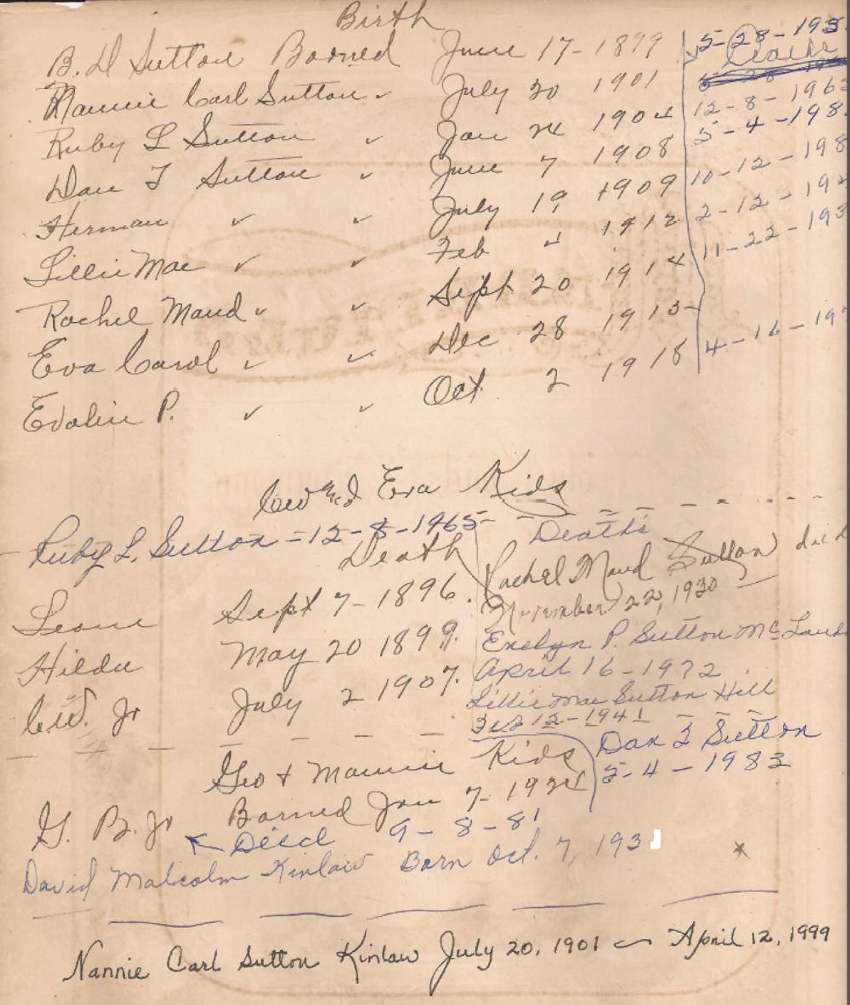 Birth
B. D Sutton Borned June 17-1899 5-28-195
Deaths
Nannie Carl Sutton ✓ July 20 1901
Ruby L Sutton ✓ Jan 24 1904 12-8-196
Dan F Sutton ✓ June 7 1908 5-4-198
Herman ✓ ✓ July 19 1909 10-12-198
Lillie Mae ✓ ✓ Feb 4 1912 2-12-19
Rachel Maud ✓ ✓ Sept 20 1914 11-22-193
Eva Carol ✓ ✓ Dec 28 1915
Evalin P. ✓ ✓ Oct 2 1918 4-16-19
CW and Eva Kids
Ruby L. Sutton = 12-8-1965 - Deaths
Death
Rachel Maud Sutton died
November 22, 1930
Leone Sept 7-1896.
Evelyn P. Sutton McLaud
April 16-1972
Hilda May 20 1899.
Lillie Mae Sutton Hill
2-12-1941
CW. Jr July 2 1907.
Dan F Sutton
5-4-1983
Geo & Nannie Kids
G. B. Jr Borned Jan 7-1924
Died 9-8-81
David Malcolm Kinlaw Born Oct. 7, 193
Nannie Carl Sutton Kinlaw July 20, 1901 - April 12, 1999